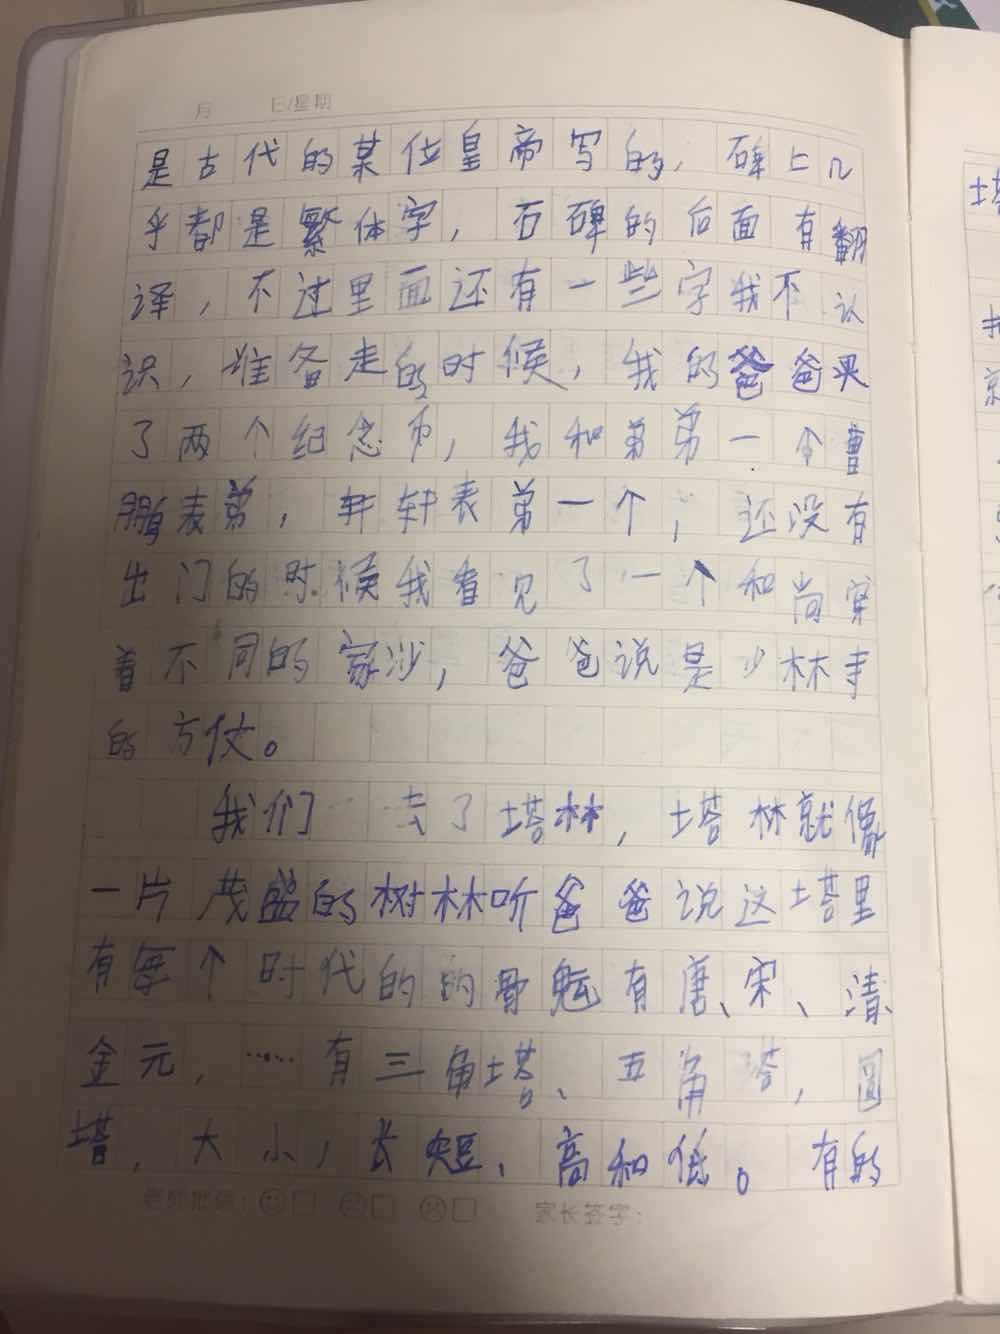 月 日/星期
是古代的某位皇帝写的，碑上几
乎都是繁体字，石碑的后面有翻
译，不过里面还有一些字我不认
识，准备走的时候，我的爸爸买
了两个纪念币，我和弟弟一个曹
鹏表弟，轩轩表弟一个，还没有
出门的时候我看见了一个和尚穿
着不同的袈沙，爸爸说是少林寺
的方仗。
我们 去了塔林，塔林就像
一片茂盛的树林听爸爸说这塔里
有每个时代的的骨有唐、宋、清、
金元，……有三角塔、五角塔，圆
塔，大小，长短、高和低。有的
老师批阅： 家长签字：
塔